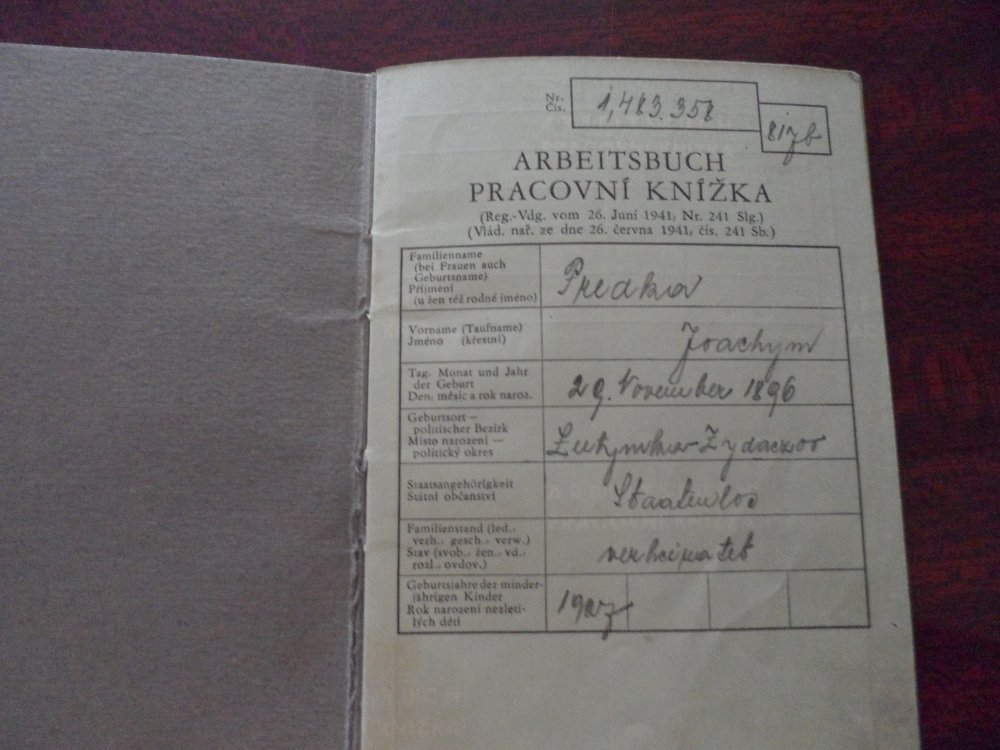 Nr.
Čís.
1,483.358
ARBEITSBUCH
PRACOVNÍ KNÍŽKA
(Reg.-Vdg. vom 26. Juni 1941, Nr. 241 Slg.)
(Vlád. nař. ze dne 26. června 1941, čís. 241 Sb.)
Familienname
(bei Frauen auch
Geburtsname)
Příjmení
(u žen též rodné jméno)
Predka
Vorname (Taufname)
Jméno (křestní)
Joachym
Tag, Monat und Jahr
der Geburt
Den, měsíc a rok naroz.
29. November 1896
Geburtsort —
politischer Bezirk
Místo narození —
politický okres
Staatsangehörigkeit
Státní občanství
Staatenlos
Familienstand (led.,
verh., gesch., verw.)
Stav (svob., žen., vd.,
rozl., ovdov.)
verheiratet
Geburtsjahre der minder-
jährigen Kinder
Rok narození nezleti-
lých dětí
1927